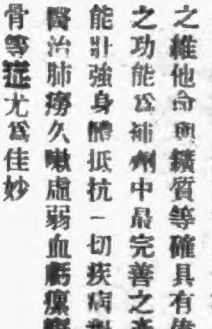 之維他命與鑛質等確具有
之功能爲補劑中最完善之
能壯強身體抵抗一切疾病
醫治肺癆久嗽虛弱血虧瘰
骨等症尤爲佳妙